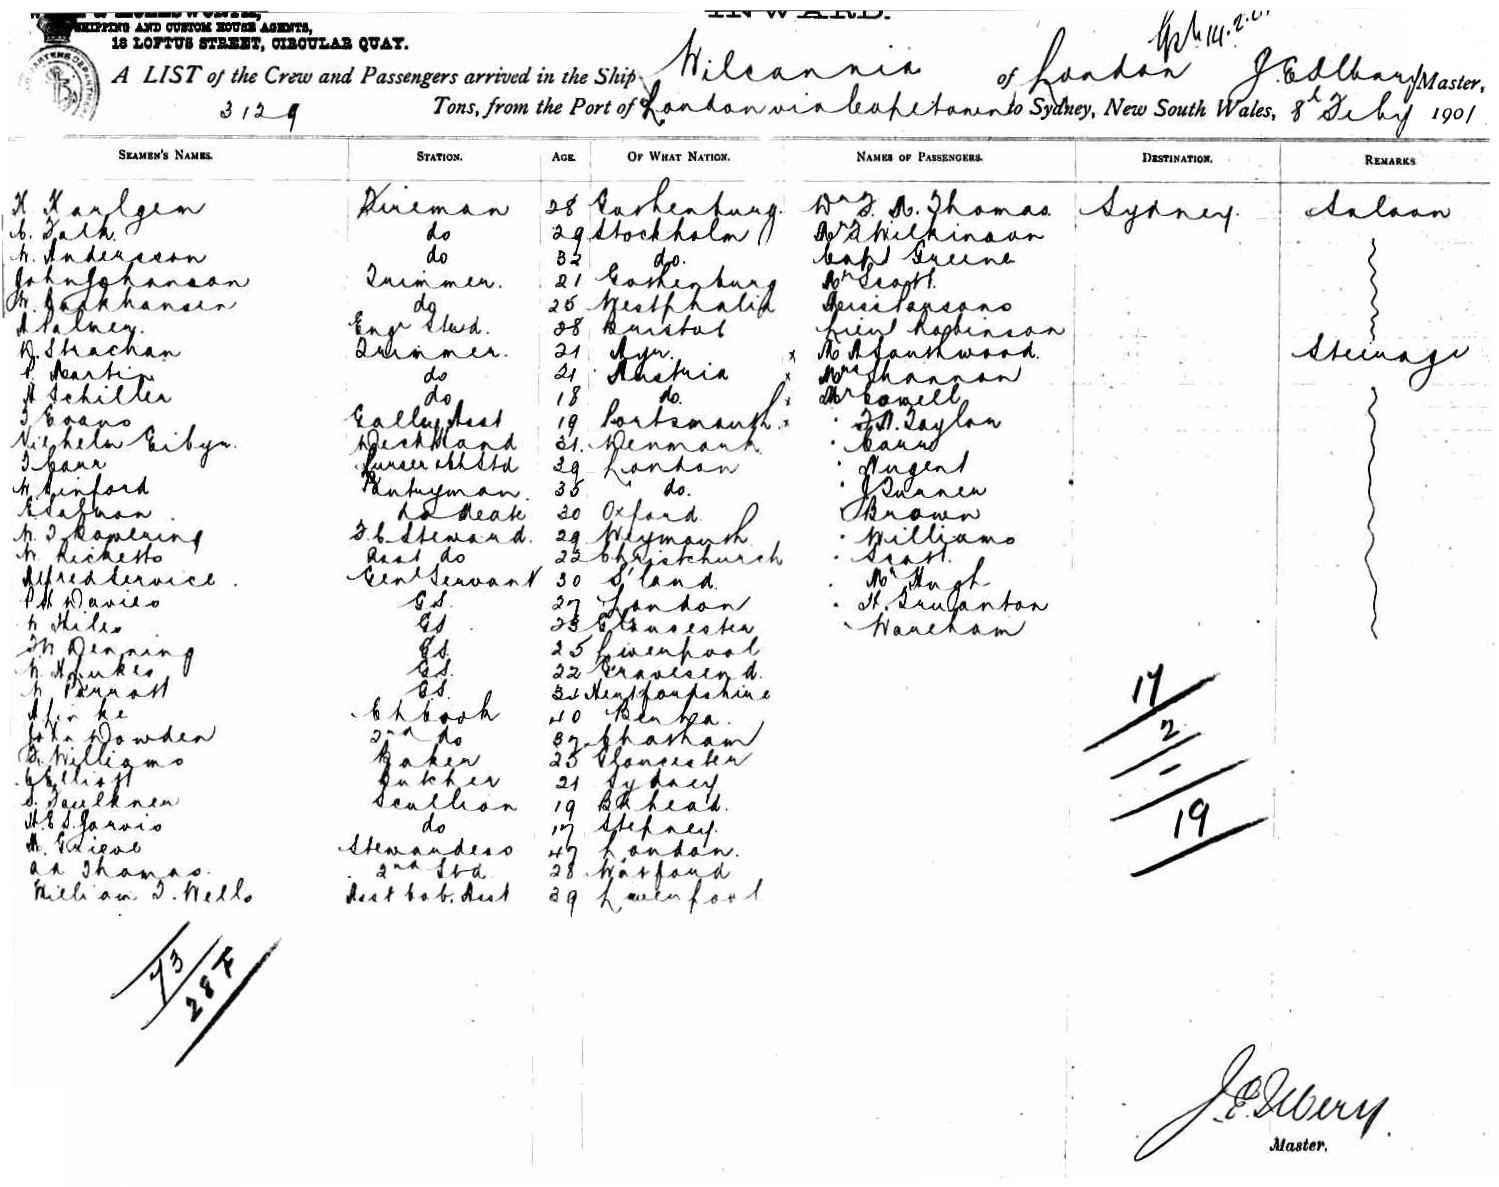 INWARD.
SHIPPING AND CUSTOM HOUSE AGENTS,
18 LOFTUS STREET, CIRCULAR QUAY.
A LIST of the Crew and Passengers arrived in the Ship Wilcannia of London J. E Ilbery Master,
3129 Tons, from the Port of London via Capetown to Sydney, New South Wales, 8th Feby 1901
SEAMEN'S NAMES. STATION. AGE. OF WHAT NATION. NAMES OF PASSENGERS. DESTINATION. REMARKS
K Karlgen Fireman 28 Gothenburg. Dr T. A. Thomas Sydney. Saloon
C. Falk. do 29 Stockholm Wilkinson
Andersson do 32 do. Capt Greene
John Johanson Trimmer. 21 Gothenburg Mr Scott.
do 25 Westphalia Miss Parsons
Engr Stwd. 28 Bristol Lieut Robinson
D. Strachan Trimmer. 21 Ayr. x Mr A Southwood. Steerage
P Martin do 21 Austria x Mrs Shannon
A Schiller do 18 do. x Mr Cowell
T Evans Galley Asst 19 Portsmouth. x " Taylor
Vilehelm Deck Hand 31. Denmark " Carr
T Carr Purser Std 29 London " Nugent
Pantryman. 35 do. " J Turner
do Mate 30 Oxford. " Brown
W. T. Bowering F.C. Steward. 29 Weymouth " Williams
W. Ricketts Asst do 22 Christchurch " Scott.
Alfred Service. Genl Servant 30 S'land. " Mr Hugh
P H Davies GS. 27 London "
W Hiles GS. 23 Gloucester " Wareham
Denning GS. 25 Liverpool
GS. 22 Gravesend.
W Parrott GS. Hertfordshire
Ch Cook 40
John Dowden 2nd do 37 Chatham
Williams Baker 25 Gloucester
E Elliott Butcher 21 Sydney
S. Faulkner Scullion 19 B'Khead.
H. E. S. Jarvis do 17 Stepney.
M. Grieve Stewardess 47 London.
Thomas. 2nd Std 28 Watford
William T. Wells Asst Cab. Asst 39 Liverpool
17
2
-
19
73
28 F
J. E. Ilbery
Master.